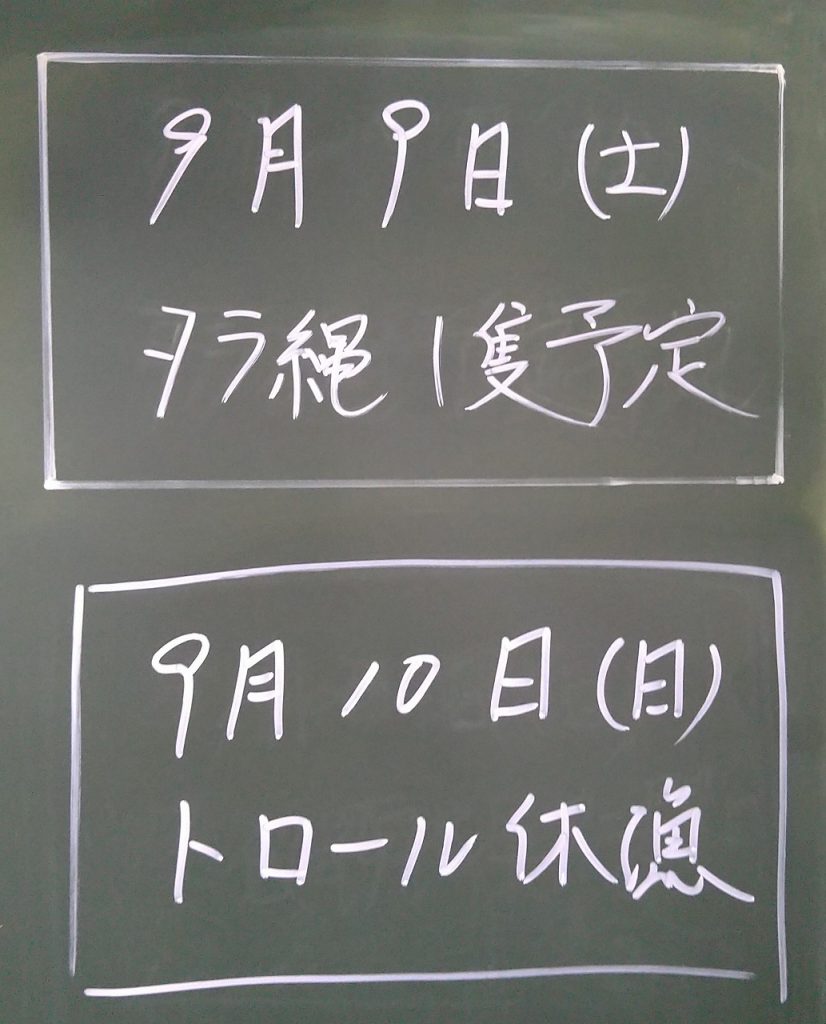 9月9日(土)
タラ縄1隻予定
9月10日(日)
トロール休漁